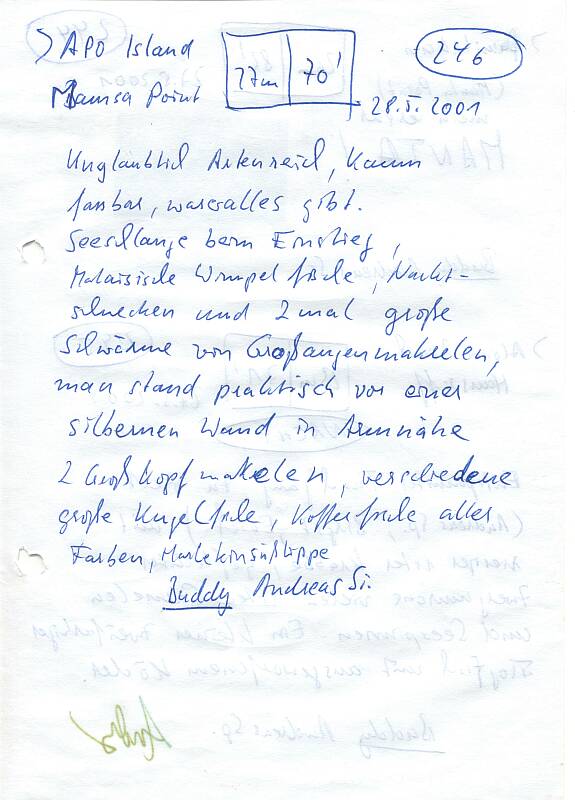 > Apo Island
27m 70'
246
Mamsa Point
28.5.2001
Unglaublich Artenreich, kaum
fassbar, was alles gibt.
Seeschlange beim Einstieg,
Malaiische Wimpelfische, Nackt-
schnecken und 2 mal große
Schwärme von Großaugenmakrelen,
man stand praktisch vor einer
silbernen Wand in Armnähe
2 Großkopfmakelen, verschiedene
große Kugelfische, Kofferfische aller
Farben, Harlekinsüßlippe
Buddy Andreas Si.